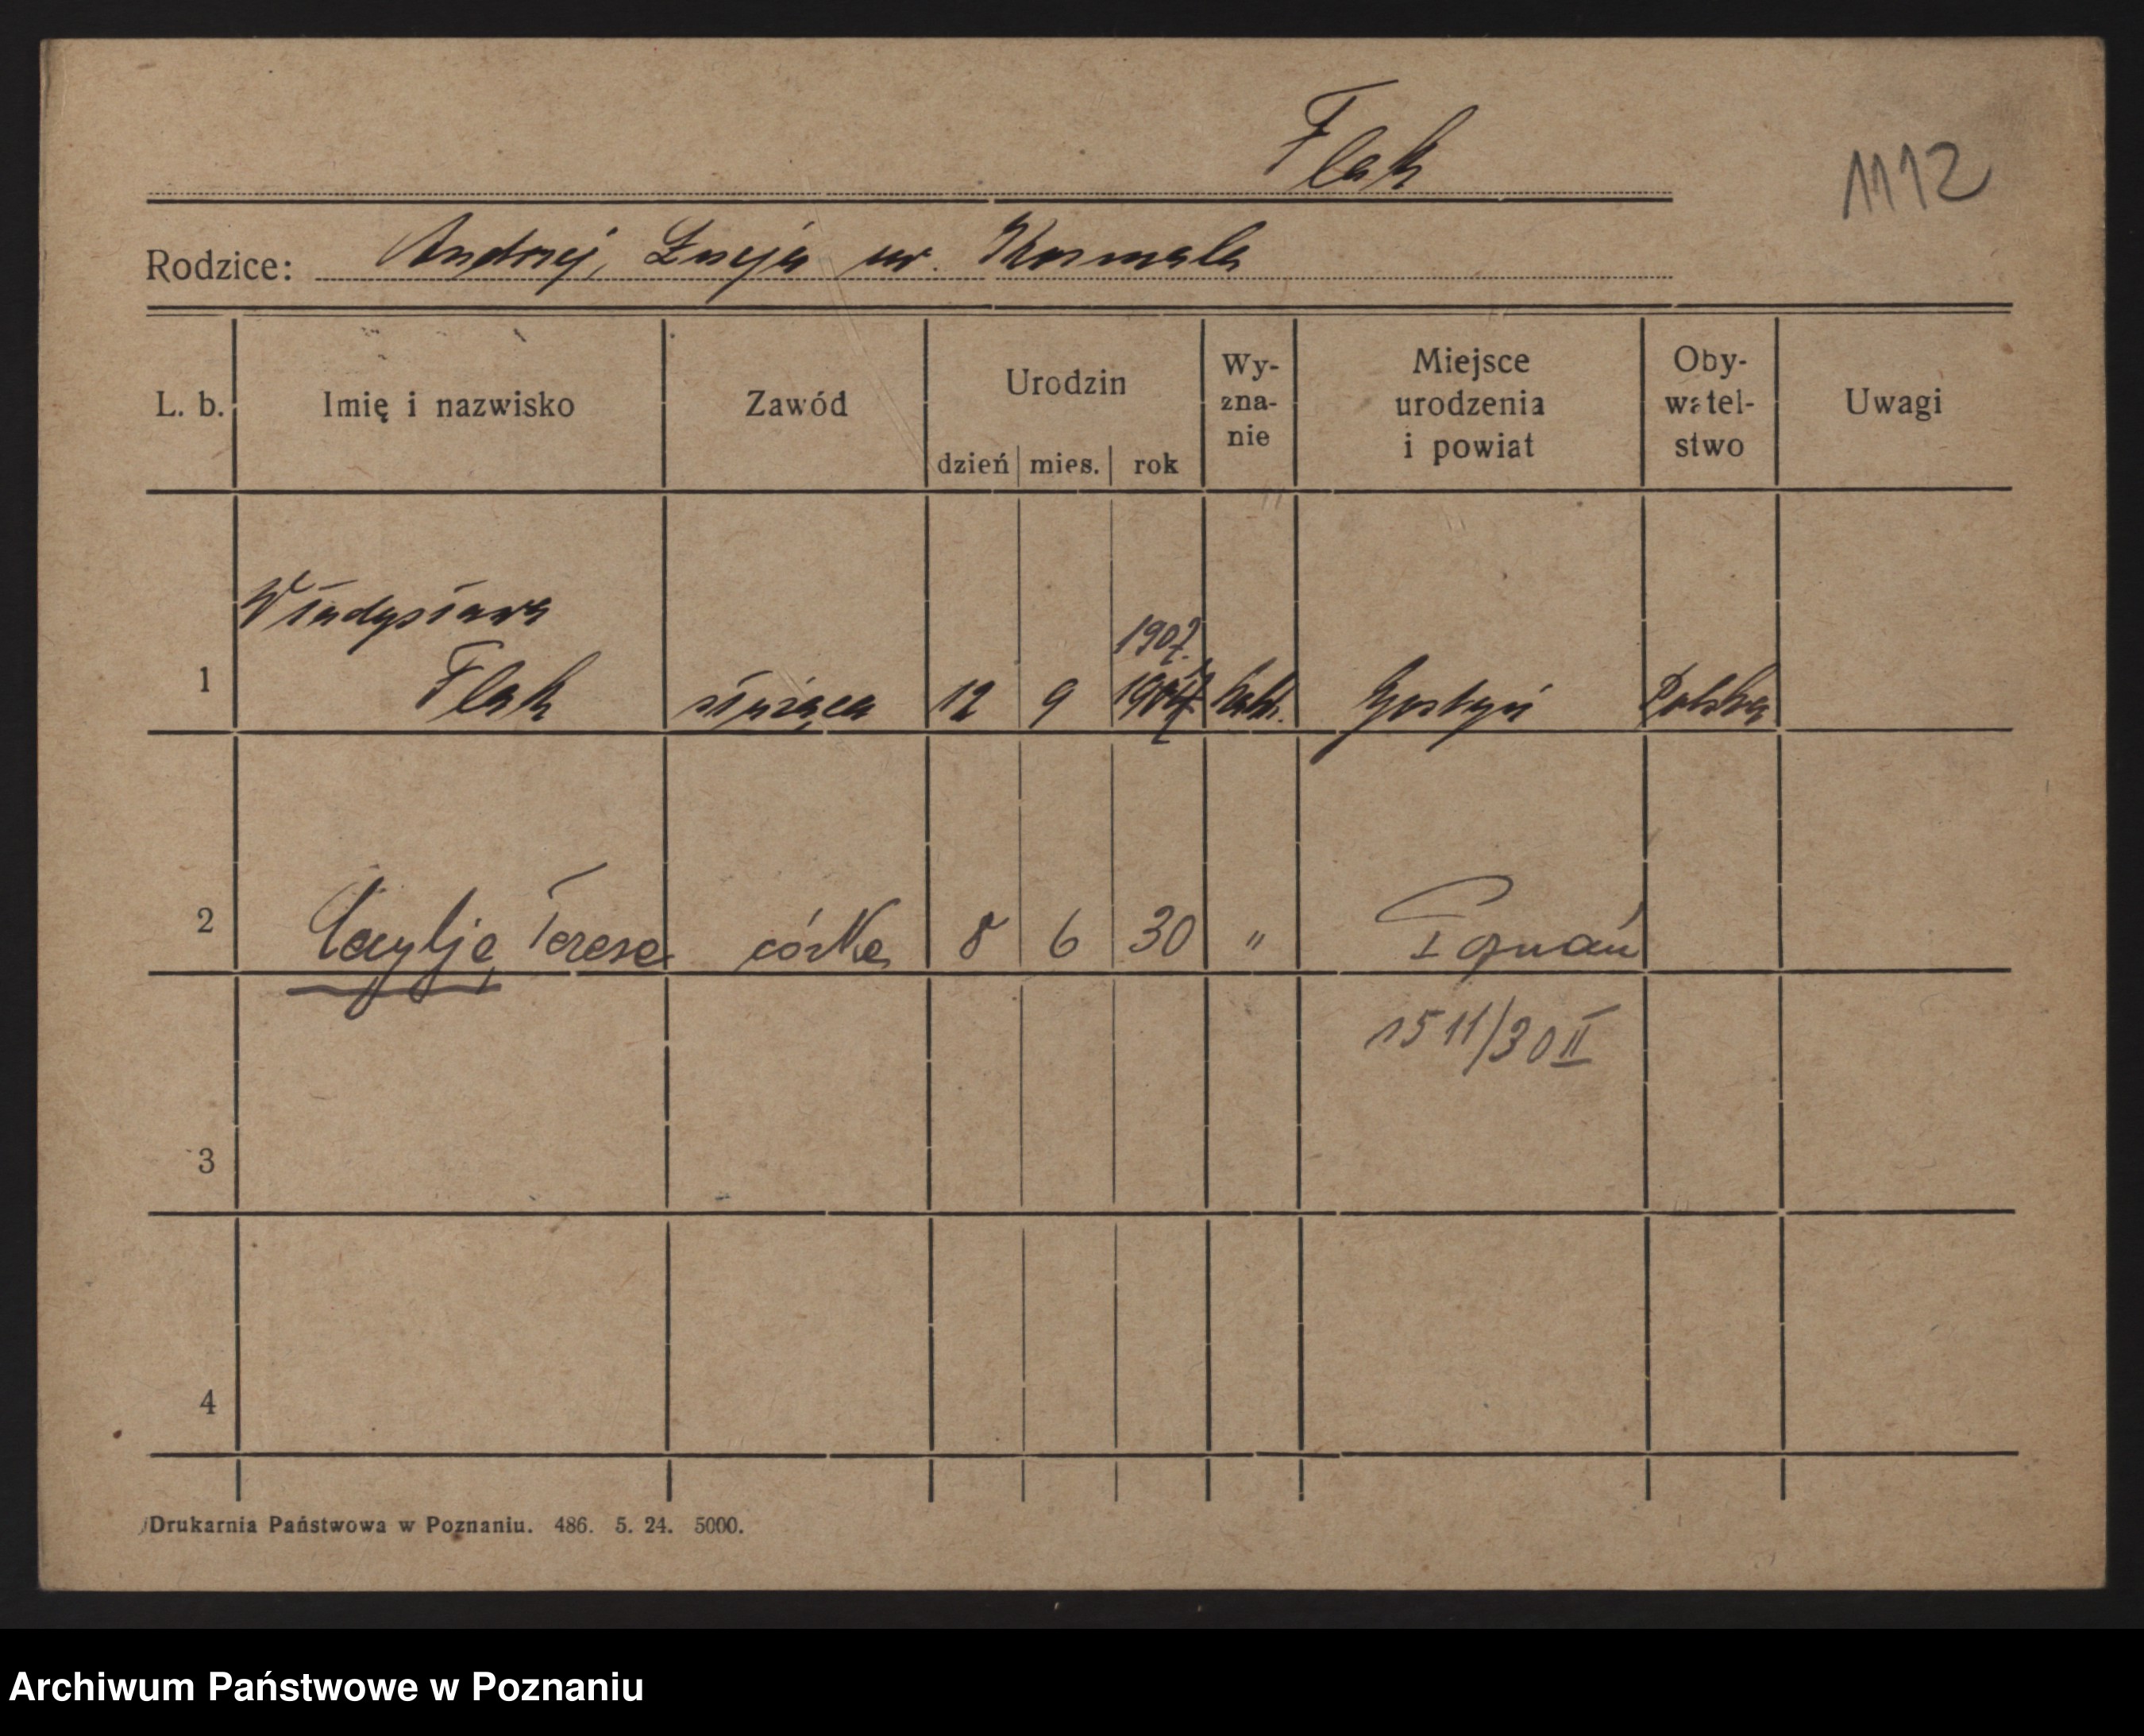 Flak
1112
Rodzice: Andrzej, Łucja ur. Kosmala
L. b. Imię i nazwisko Zawód Urodzin dzień mies. rok Wy-zna-nie Miejsce urodzenia i powiat Oby-watel-stwo Uwagi
Władysława
1907.
1 Flak służąca 12 9 kath. Gostyń Polska
2 Cecylja Teresa córka 8 6 30 " Poznań
1511/30 II
3
4
Drukarnia Państwowa w Poznaniu. 486. 5. 24. 5000.
Archiwum Państwowe w Poznaniu